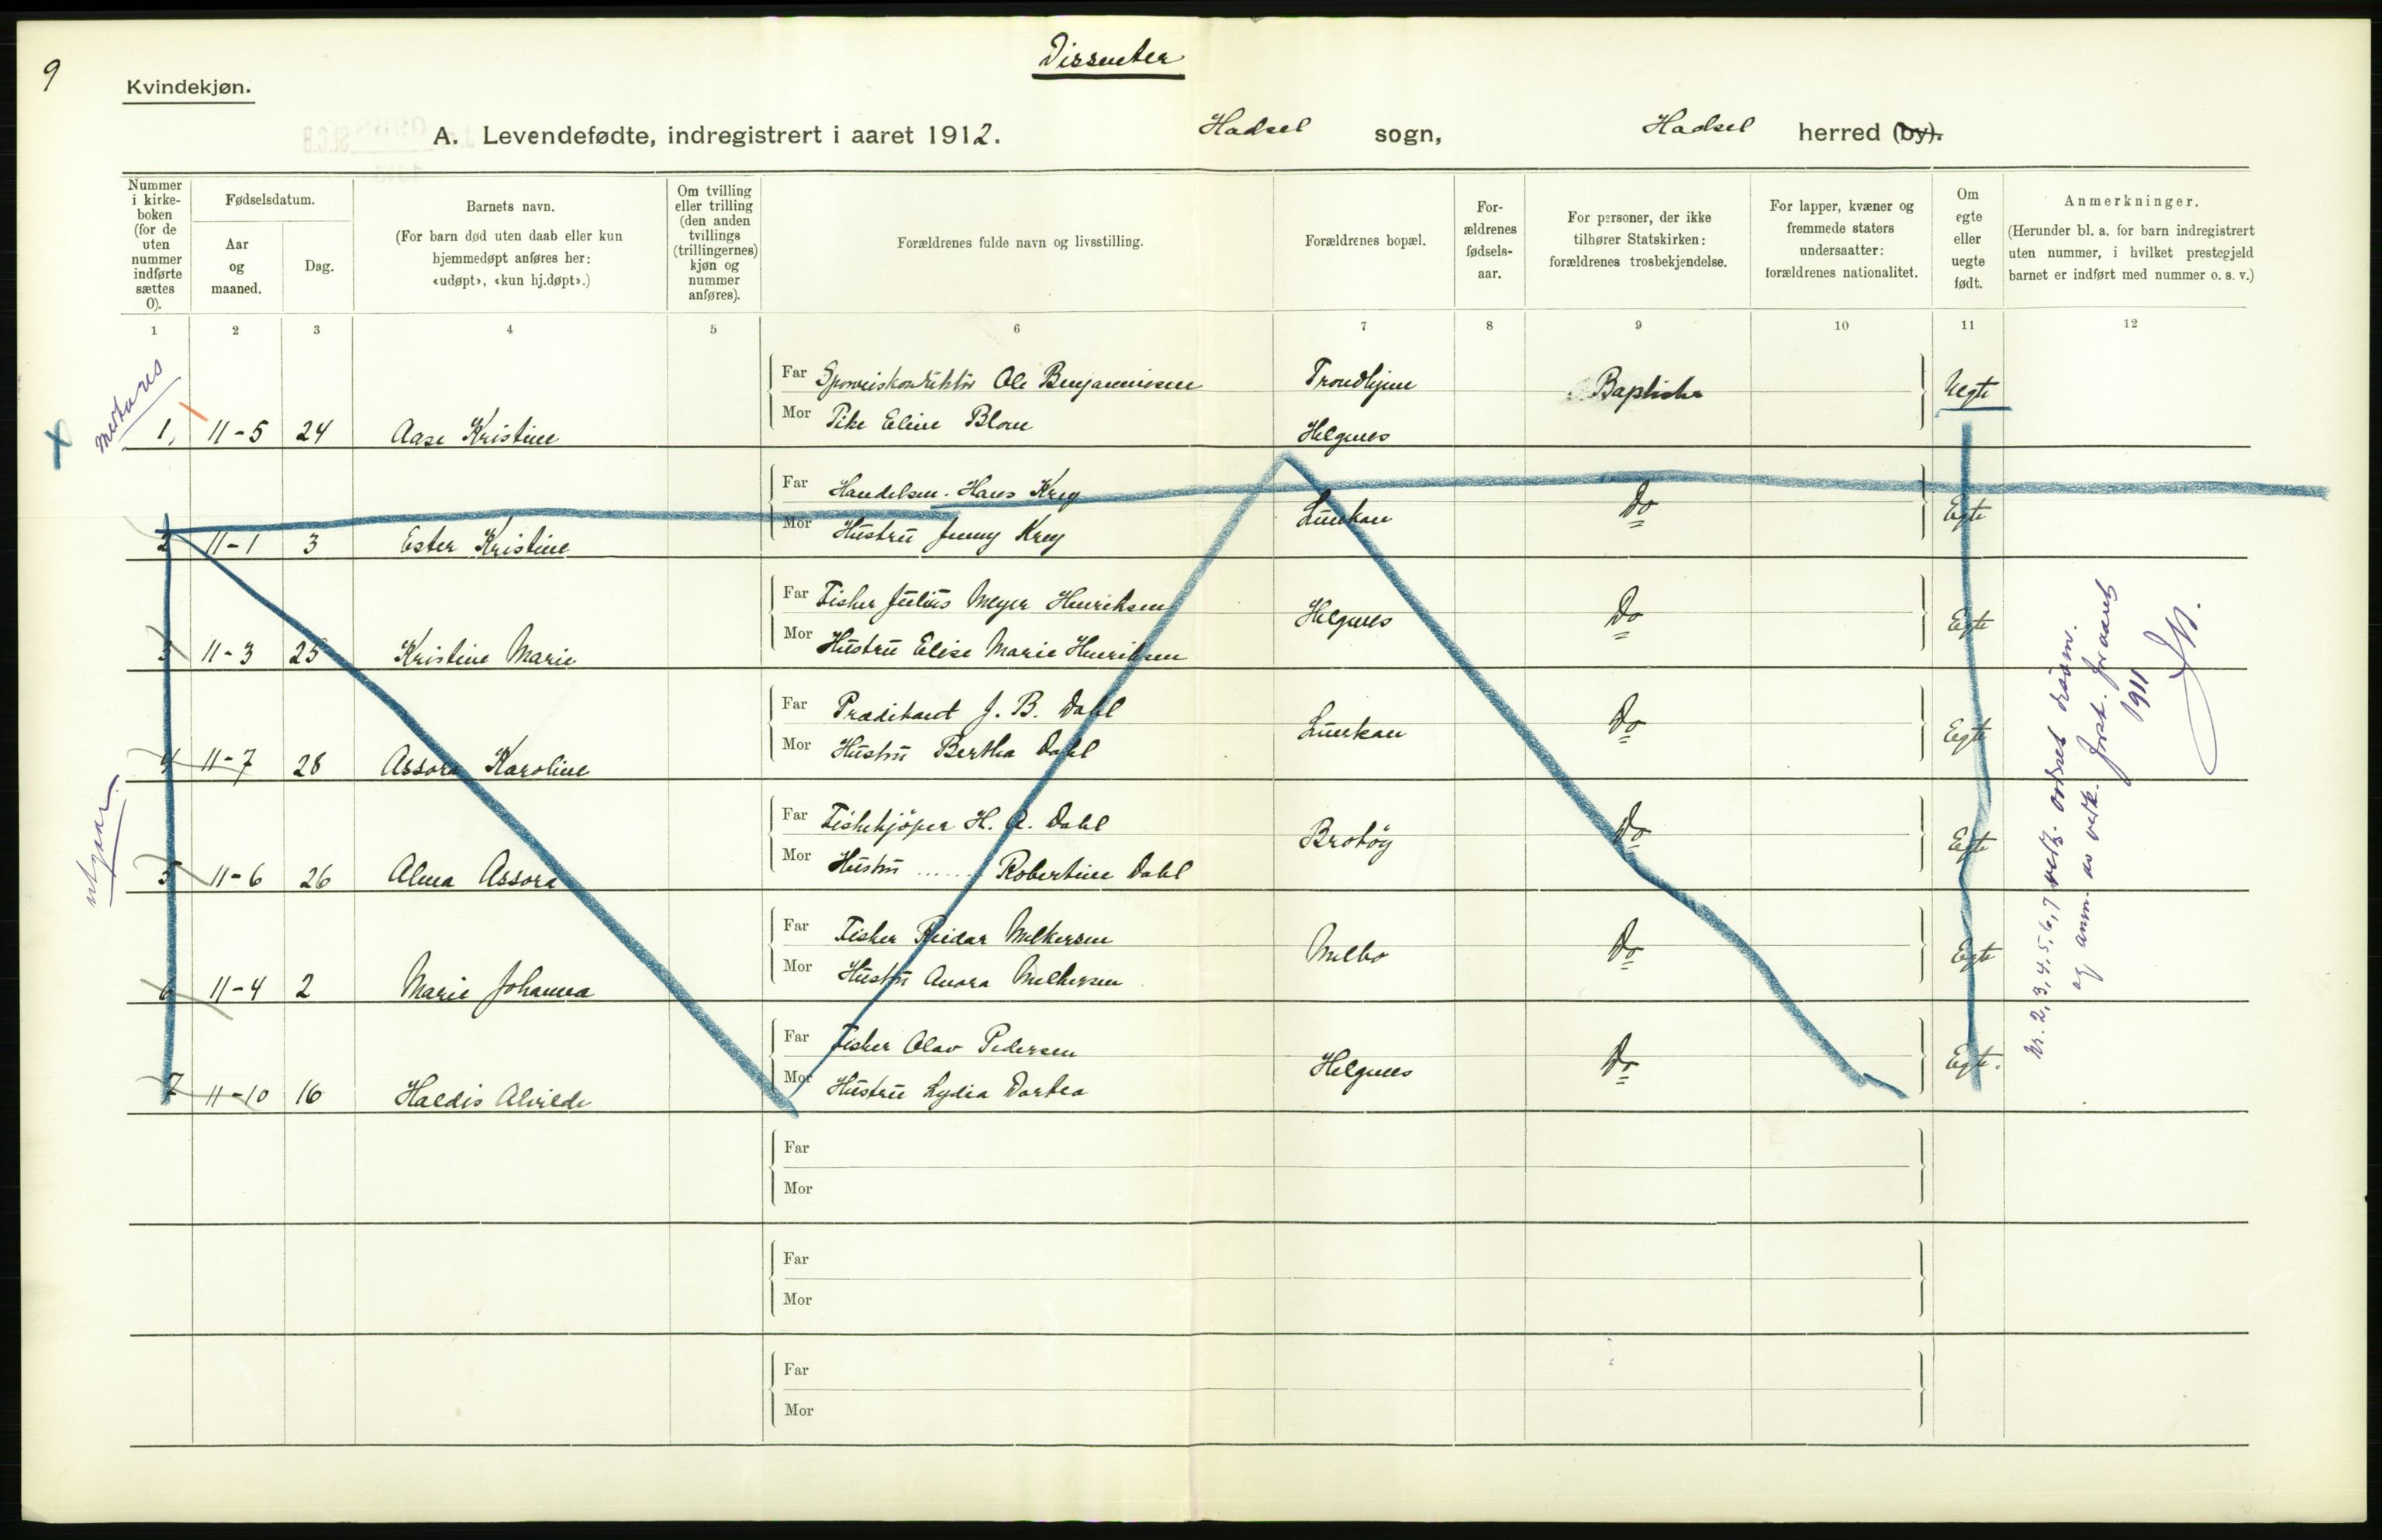 9
Dissenter
Kvindekjøn.
A. Levendefødte, indregistrert i aaret 1912. Hadsel sogn, Hadsel herred (by).
Nummer i kirke-boken (for de uten nummer indførte sættes 0).
Fødselsdatum.
Aar og maaned.
Dag.
Barnets navn.
(For barn død uten daab eller kun hjemmedøpt anføres her: «udøpt», «kun hj.døpt».)
Om tvilling eller trilling (den anden tvillings (trillingernes) kjøn og nummer anføres).
Forældrenes fulde navn og livsstilling.
Forældrenes bopæl.
For-ældrenes fødsels-aar.
For personer, der ikke tilhører Statskirken: forældrenes trosbekjendelse.
For lapper, kvæner og fremmede staters undersaatter: forældrenes nationalitet.
Om egte eller uegte født.
Anmerkninger.
(Herunder bl. a. for barn indregistrert uten nummer, i hvilket prestegjeld barnet er indført med nummer o. s. v.)
1 2 3 4 5 6 7 8 9 10 11 12
medtages
Far Sporveiskonduktör Ole Benjaminsen Trondhjem Baptister Uegte
1, 11-5 24 Aase Kristine Mor Pike Eline Blom Helgnes
Far Handelsm. Hans Krey Lunkan Do Egte
2 11-1 3 Ester Kristine Mor Hustru Jenny Krey
Far Fisker Julius Meyer Henriksen Helgnes Do Egte
3 11-3 25 Kristine Marie Mor Hustru Elise Marie Henriksen
Far Prædikant J. B. Dahl Lunkan Do Egte
4 11-7 28 Assora Karoline Mor Hustru Bertha Dahl
utgaar.
Far Fiskekjöper H. A. Dahl Brotöy Do Egte
5 11-6 26 Alma Assora Mor Hustru ...... Robertine Dahl
Far Fisker Reidar Melkersen Melbo Do Egte
6 11-4 2 Marie Johanna Mor Hustru Anora Melkersen
Far Fisker Olav Pedersen Helgnes Do Egte.
7 11-10 16 Haldis Alvilde Mor Hustru Lydia Dortea
Far
Mor
Far
Mor
Far
Mor
Nr. 2, 3, 4, 5, 6, 7
og anm. as
for aaret
1911